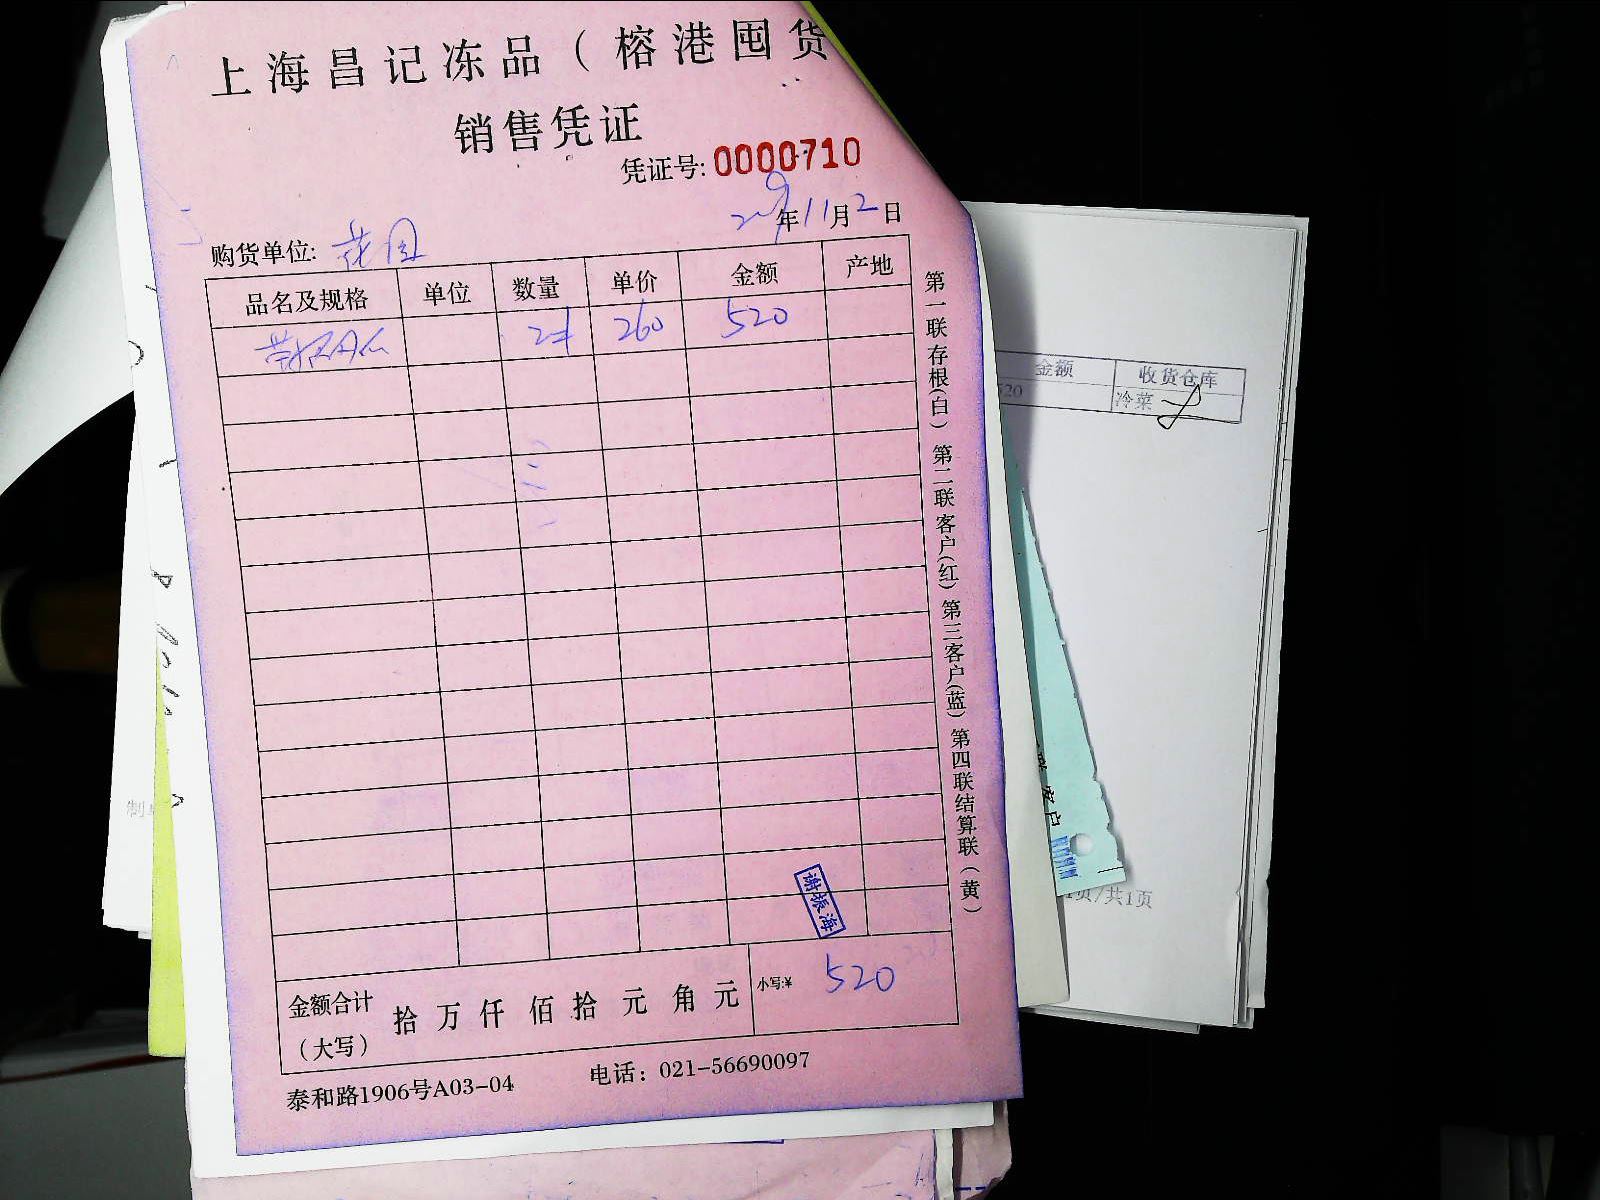 上海昌记冻品（榕港囤货
销售凭证
凭证号: 0000710
2019年11月2日
购货单位: 花园
品名及规格 单位 数量 单价 金额 产地
2件 260 520
谢振海
金额合计（大写） 拾 万 仟 佰 拾 元 角 元 小写:¥ 520
泰和路1906号A03-04 电话：021-56690097
第一联存根(白) 第二联客户(红) 第三客户(蓝) 第四联结算联(黄)
金额 收货仓库
520 冷菜
客户
1页/共1页
制单